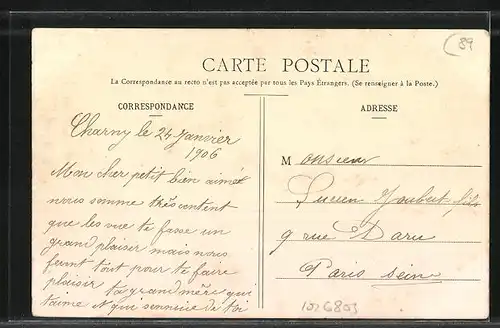 89
CARTE POSTALE
La Correspondance au recto n'est pas acceptée par tous les Pays Étrangers. (Se renseigner à la Poste.)
CORRESPONDANCE
Charny le 24 Janvier
1906
Mon cher petit bien aimé
nous somme très content
que les vue te fasse un
grand plaiser mais nous
feront tout pour te faire
plaisir ta grand mère qui
t'aime et qui sennuie de toi
ADRESSE
Monsieur
Lucien Joubert fils
9 rue Daru
Paris Seine